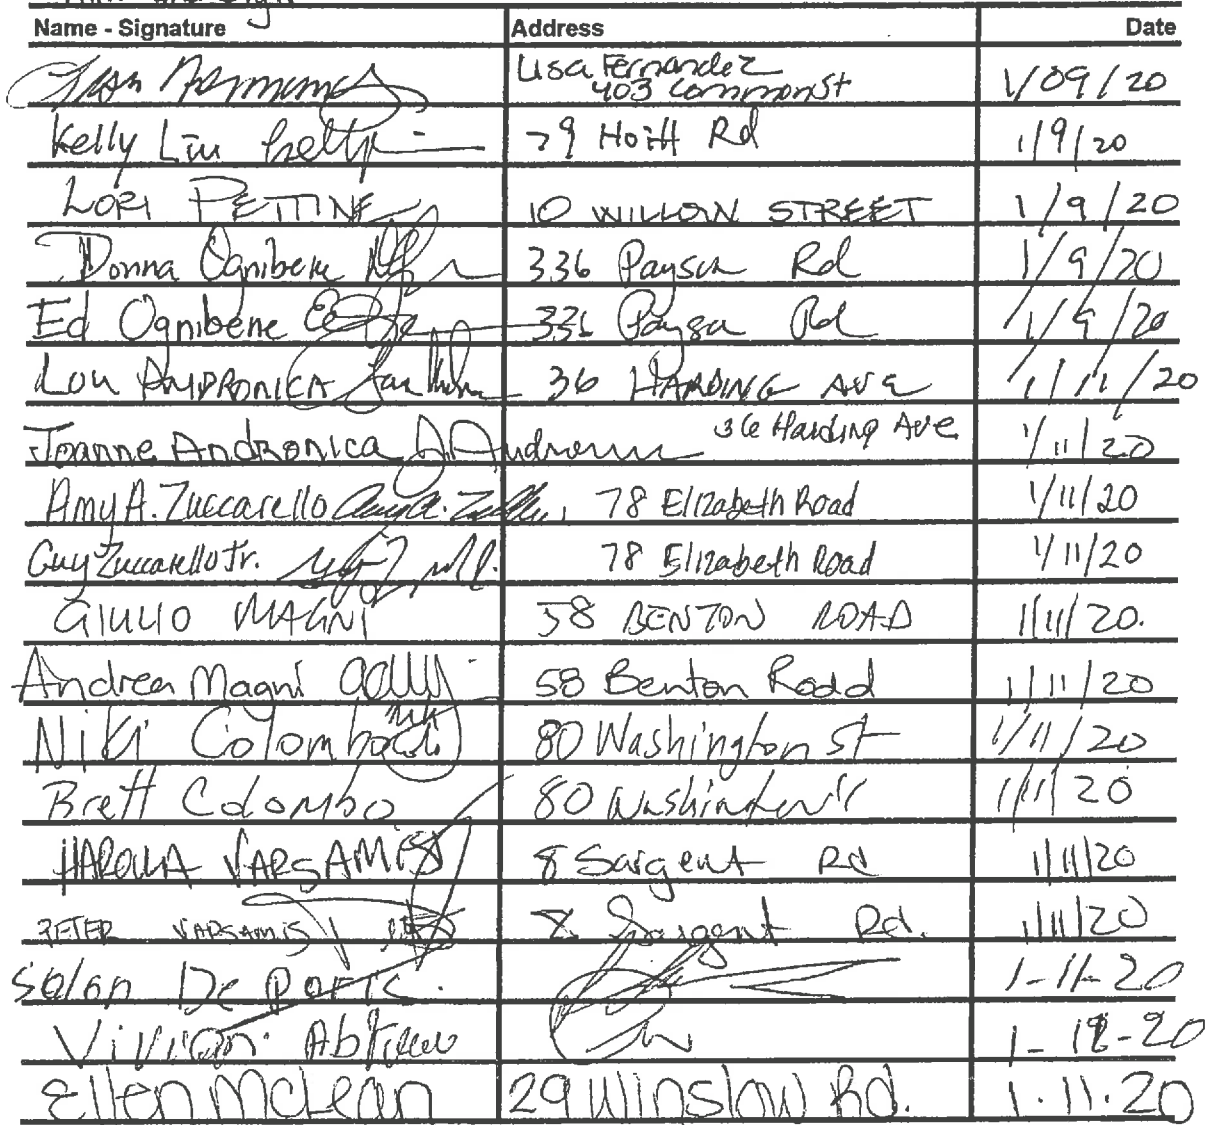 Name - Signature Address Date
Lisa Fernandez
403 Common St 1/09/20
Kelly Liu 79 Hoitt Rd 1/9/20
LORI PETTINE 10 WILLOW STREET 1/9/20
Donna Ognibene 336 Payson Rd 1/9/20
Ed Ognibene 336 Payson Rd 1/9/20
Lou ANDRONICA 36 HARDING AVE 1/11/20
Joanne Andronica J. Andronica 36 Harding Ave 1/11/20
Amy A. Zuccarello Amy A. 78 Elizabeth Road 1/11/20
Guy Zuccarello Jr. 78 Elizabeth Road 1/11/20
GIULIO MAGNI 58 BENTON ROAD 1/11/20.
Andrea Magni 58 Benton Road 1/11/20
Niki Colombo 80 Washington St 1/11/20
Brett Colombo 80 Washington 1/11/20
VARSAMIS 8 Sargent Rd 1/11/20
PETER VARSAMIS 8 Sargent Rd. 1/11/20
De 1-11-20
Vivian 20
Ellen McLean 29 Winslow Rd. 1.11.20